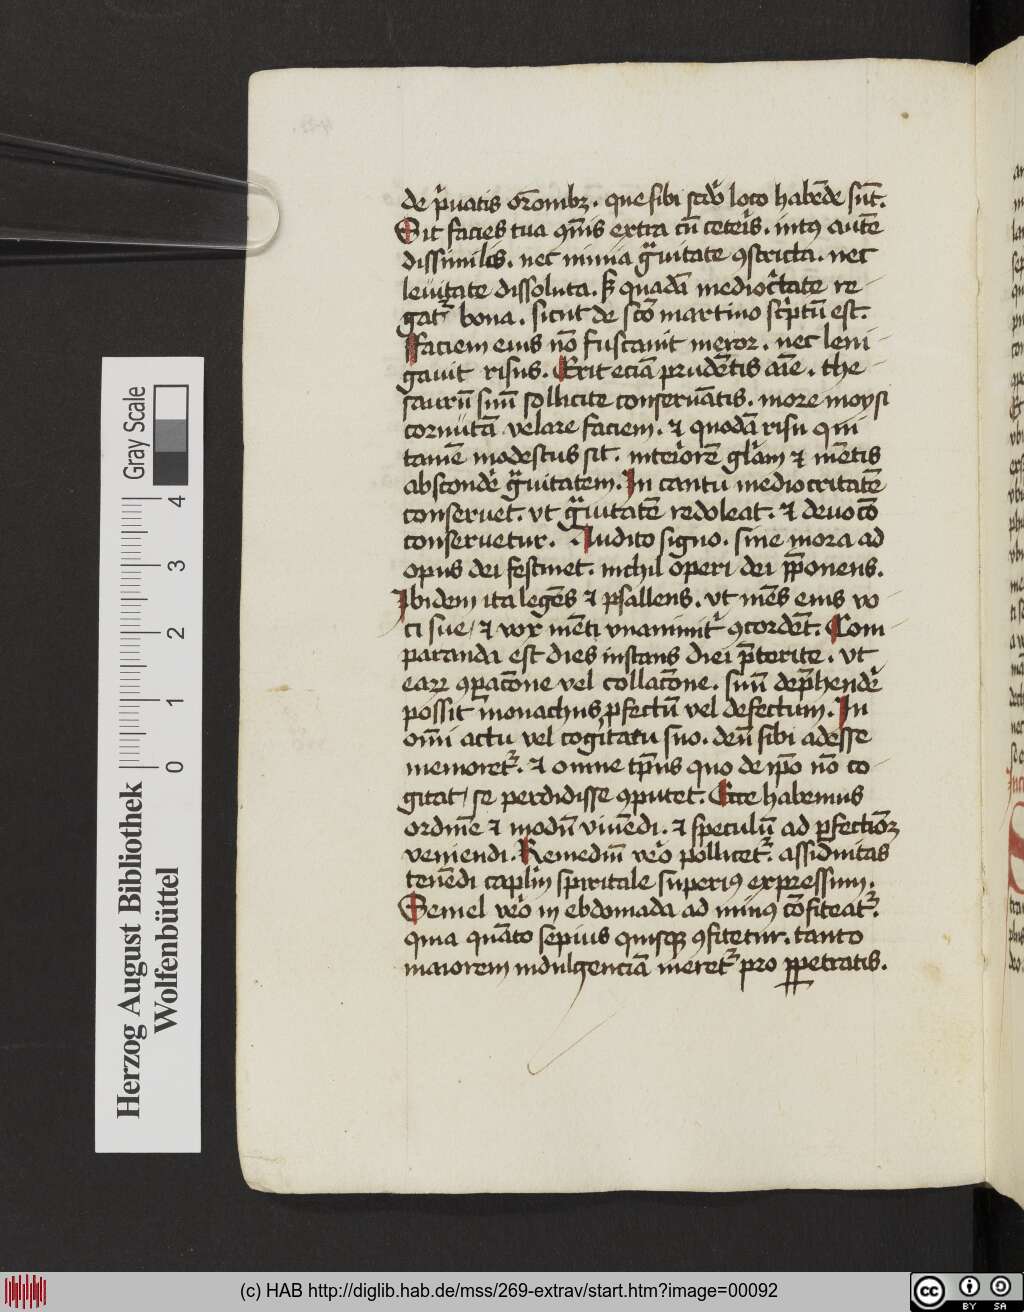 de p̾uatis or̅onibꝫ. que sibi scd̾o loco hab̅de su̅t.
Sit facies tua ꝯm̅is extra cu̅ ceteris. intꝰ aute̅
dissimilis. nec nimia g̾uitate ꝯstricta. nec
leuitate dissoluta. sꝫ quada̅ medioc̾tate re
gat᷑ bona. sicut de sc̅o martino sc̾ptu̅ est.
Faciem eius no̅ fuscauit meror. nec leui
gauit risus. Erit ecia̅ prude̅tis aīe. the
sauru̅ suu̅ sollicite conserua̅tis. more moysi
cornuta̅ velare faciem. ⁊ quoda̅ risu qui
tame̅ modestus sit. interiore̅ gl̅am ⁊ me̅tis
absconde̾ g̾uitatem. In cantu mediocritate̅
conseruet. vt g̾uitate̅ redoleat. ⁊ deuoc̅o
conseruetur. Audito signo. sine mora ad
opus dei festinet. nichil operi dei p̅ponens.
Ibidem ita lege̅s ⁊ psallens. vt me̅s eius vo
ci sue / ⁊ vox me̅ti vnanimit̾ ꝯcorde̅t. Com
paranda est dies instans diei p̅terite. vt
earꝝ ꝯpac̅one vel collac̅one. suu̅ dep̅hende̾
possit monachus ꝓfectu̅ vel defectum. In
om̅i actu vel cogitatu suo. deu̅ sibi adesse
memoret᷑. ⁊ omne tp̅us quo de ip̅o no̅ co
gitat / se perdidisse ꝯputet. Ecce habemus
ordine̅ ⁊ modu̅ viue̅di. ⁊ speculu̅ ad ꝑfectio̅ꝫ
veniendi. Remediu̅ ve̾o pollicet᷑. assiduitas
tene̅di cap̅lm spiritale superiꝰ expressum.
Semel ve̾o in ebdomada ad minꝰ co̅fiteat᷑.
quia qua̅to sepius quisqꝫ ꝯfitetur. tanto
maiorem indulgencia̅ meret᷑ pro ꝑpetratis.
Herzog August Bibliothek
Wolfenbüttel
0 1 2 3 4
Gray Scale
(c) HAB http://diglib.hab.de/mss/269-extrav/start.htm?image=00092
cc BY SA